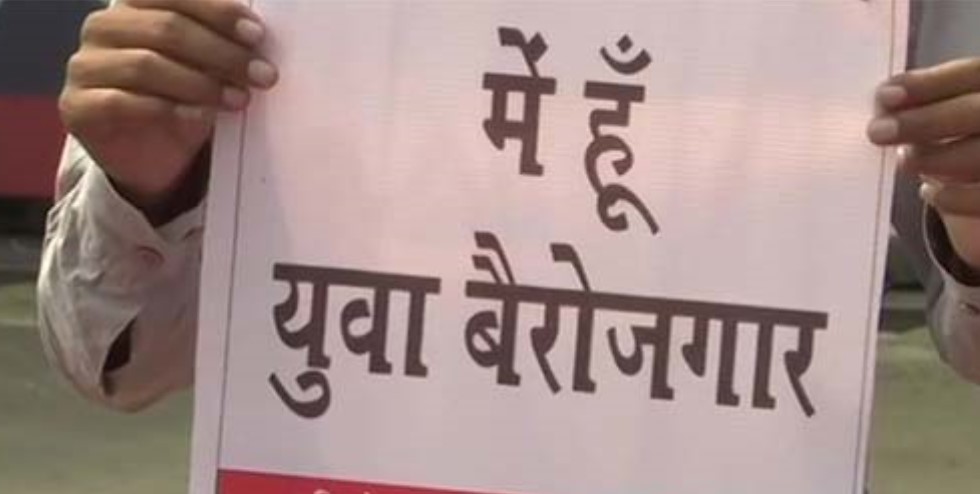 में हूँ
युवा बैरोजगार